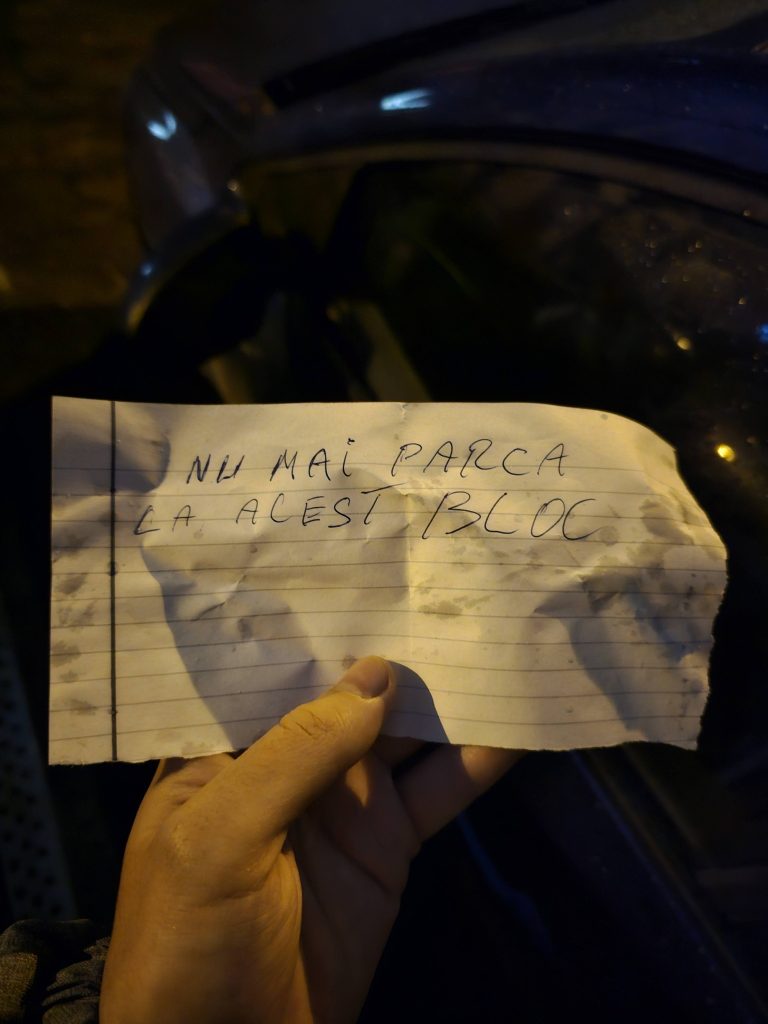 NU MAi PARCA
LA ACEST BLOC